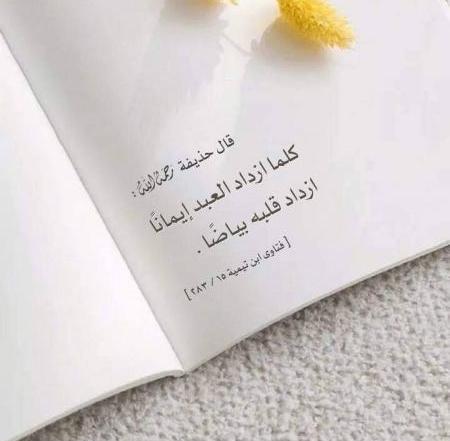 قال حذيفة رحمه الله :
كلما ازداد العبد إيمانًا
ازداد قلبه بياضًا .
[ فتاوى ابن تيمية ١٥ / ٢٨٣ ]